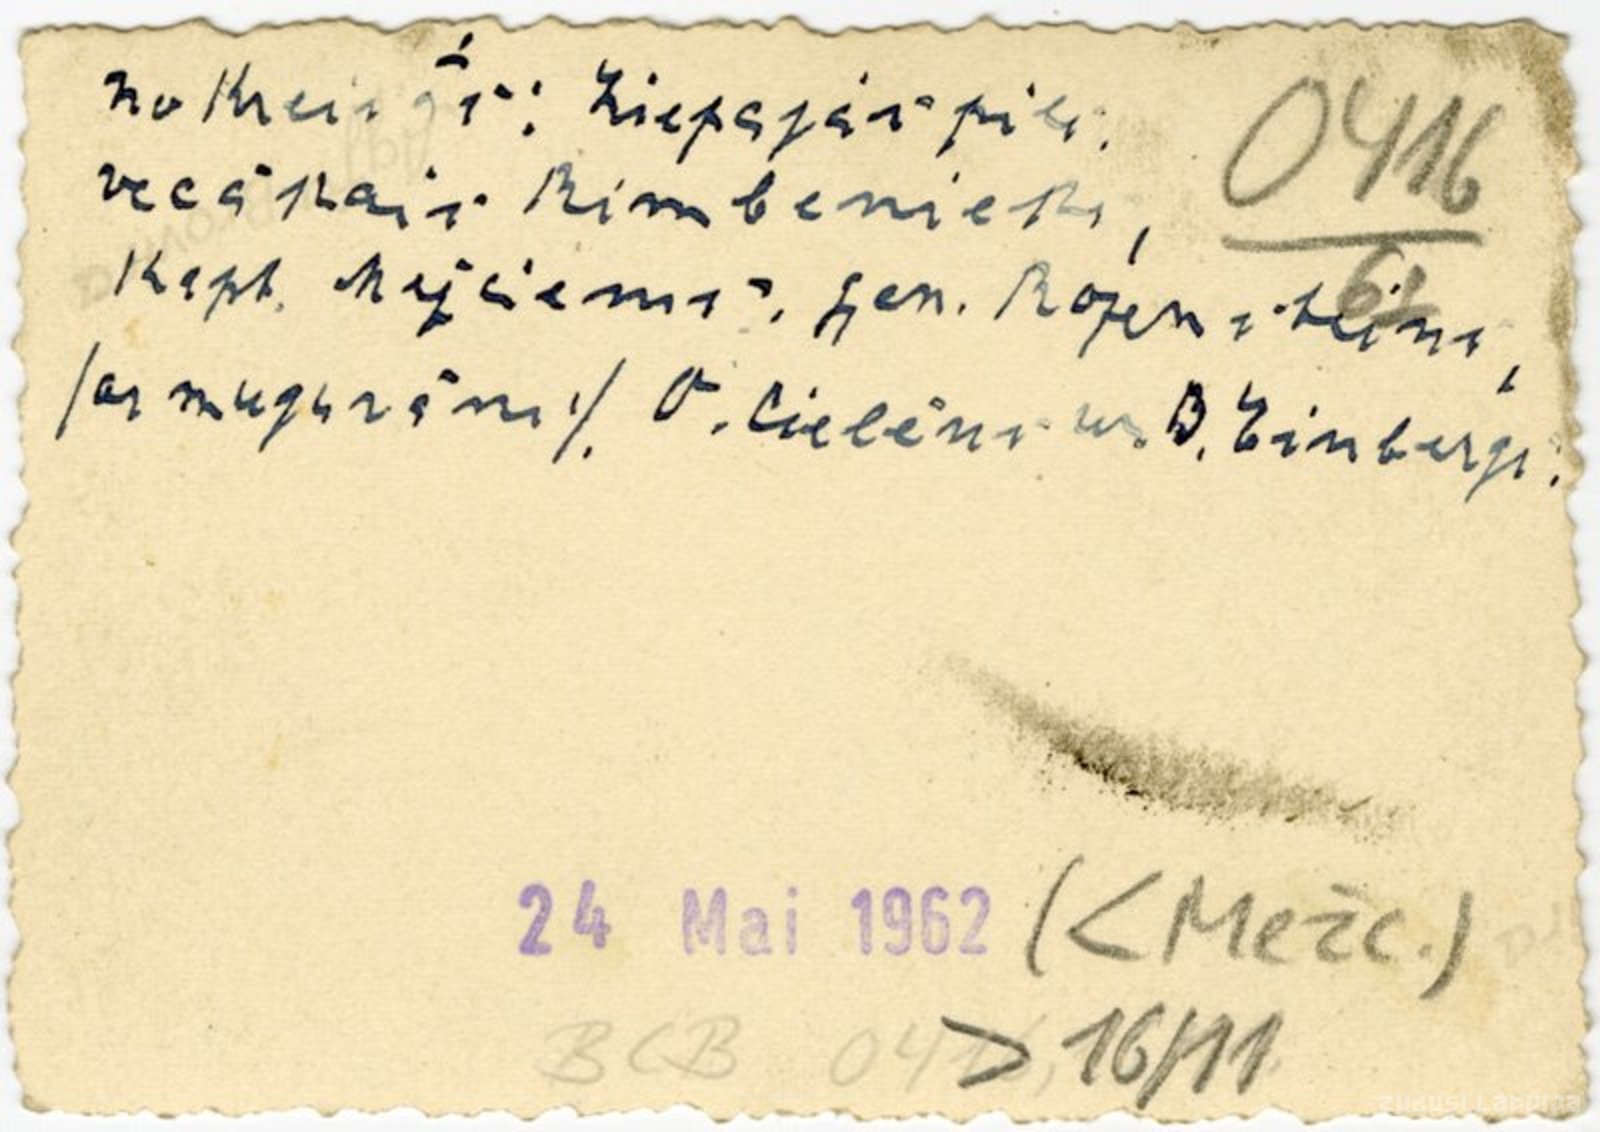 No kreisās: Liepājas pils.
vecākais Rimbenieks,
Kapt. Mežciems, gen. Rozenšteins,
/ar muguru/, F. Cielēns un B. Einbergs.
0416
61
24 Mai 1962 (<Mežc.)
> 16/11
BCB 041
zudusi Latvija